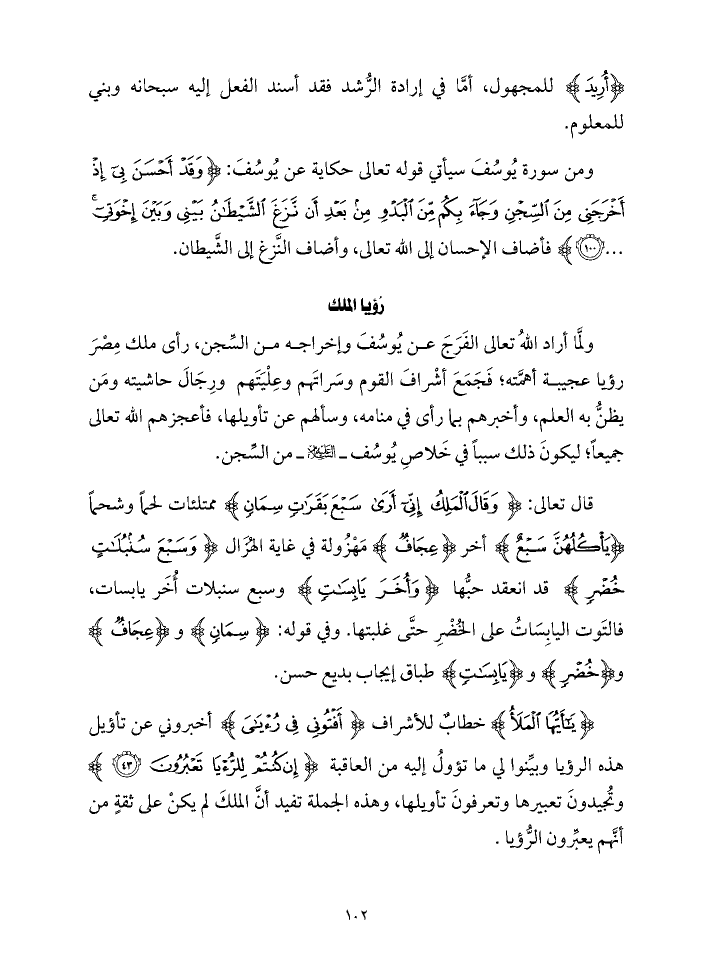 ﴿أُرِيدَ﴾ للمجهول، أمَّا في إرادة الرُّشد فقد أسند الفعل إليه سبحانه وبني
للمعلوم.
ومن سورة يُوسُفَ سيأتي قوله تعالى حكاية عن يُوسُفَ: ﴿وَقَدْ أَحْسَنَ بِيٓ إِذْ
أَخْرَجَنِي مِنَ ٱلسِّجْنِ وَجَآءَ بِكُم مِّنَ ٱلْبَدْوِ مِنۢ بَعْدِ أَن نَّزَغَ ٱلشَّيْطَٰنُ بَيْنِي وَبَيْنَ إِخْوَتِيٓۚ
... ١٠٠﴾ فأضاف الإحسان إلى الله تعالى، وأضاف النَّزغ إلى الشَّيطان.
رُؤيا الملك
ولمَّا أراد اللهُ تعالى الفَرَجَ عن يُوسُفَ وإخراجه من السِّجن، رأى ملك مِصْرَ
رؤيا عجيبة أهمَّته؛ فَجَمَعَ أشْرافَ القوم وسَراتَهم وعِلْيَتَهم ورِجَالَ حاشيته ومَن
يظنُّ به العلم، وأخبرهم بما رأى في منامه، وسألهم عن تأويلها، فأعجزهم الله تعالى
جميعاً؛ ليكونَ ذلك سبباً في خَلاصِ يُوسُف ـ عليه السلام ـ من السِّجن.
قال تعالى: ﴿وَقَالَ ٱلْمَلِكُ إِنِّيٓ أَرَىٰ سَبْعَ بَقَرَٰتٍ سِمَانٍ﴾ ممتلئات لحماً وشحماً
﴿يَأْكُلُهُنَّ سَبْعٌ﴾ أخر ﴿عِجَافٌ﴾ مَهْزُولة في غاية الهُزَال ﴿وَسَبْعَ سُنۢبُلَٰتٍ
خُضْرٍ﴾ قد انعقد حبُّها ﴿وَأُخَرَ يَابِسَٰتٍ﴾ وسبع سنبلات أُخَر يابسات،
فالتَوت اليابِسَاتُ على الخُضْرِ حتَّى غلبتها. وفي قوله: ﴿سِمَانٍ﴾ و ﴿عِجَافٌ﴾
و﴿خُضْرٍ﴾ و ﴿يَابِسَٰتٍ﴾ طباق إيجاب بديع حسن.
﴿يَٰٓأَيُّهَا ٱلْمَلَأُ﴾ خطابٌ للأشراف ﴿أَفْتُونِي فِي رُءْيَٰيَ﴾ أخبروني عن تأؤيل
هذه الرؤيا وبيِّنوا لي ما تؤولُ إليه من العاقبة ﴿إِن كُنتُمْ لِلرُّءْيَا تَعْبُرُونَ ٤٣﴾
وتُجيدونَ تعبيرها وتعرفونَ تأويلها، وهذه الجملة تفيد أنَّ الملكَ لم يكنْ على ثقةٍ من
أنَّهم يعبِّرون الرُّؤيا .
١٠٢